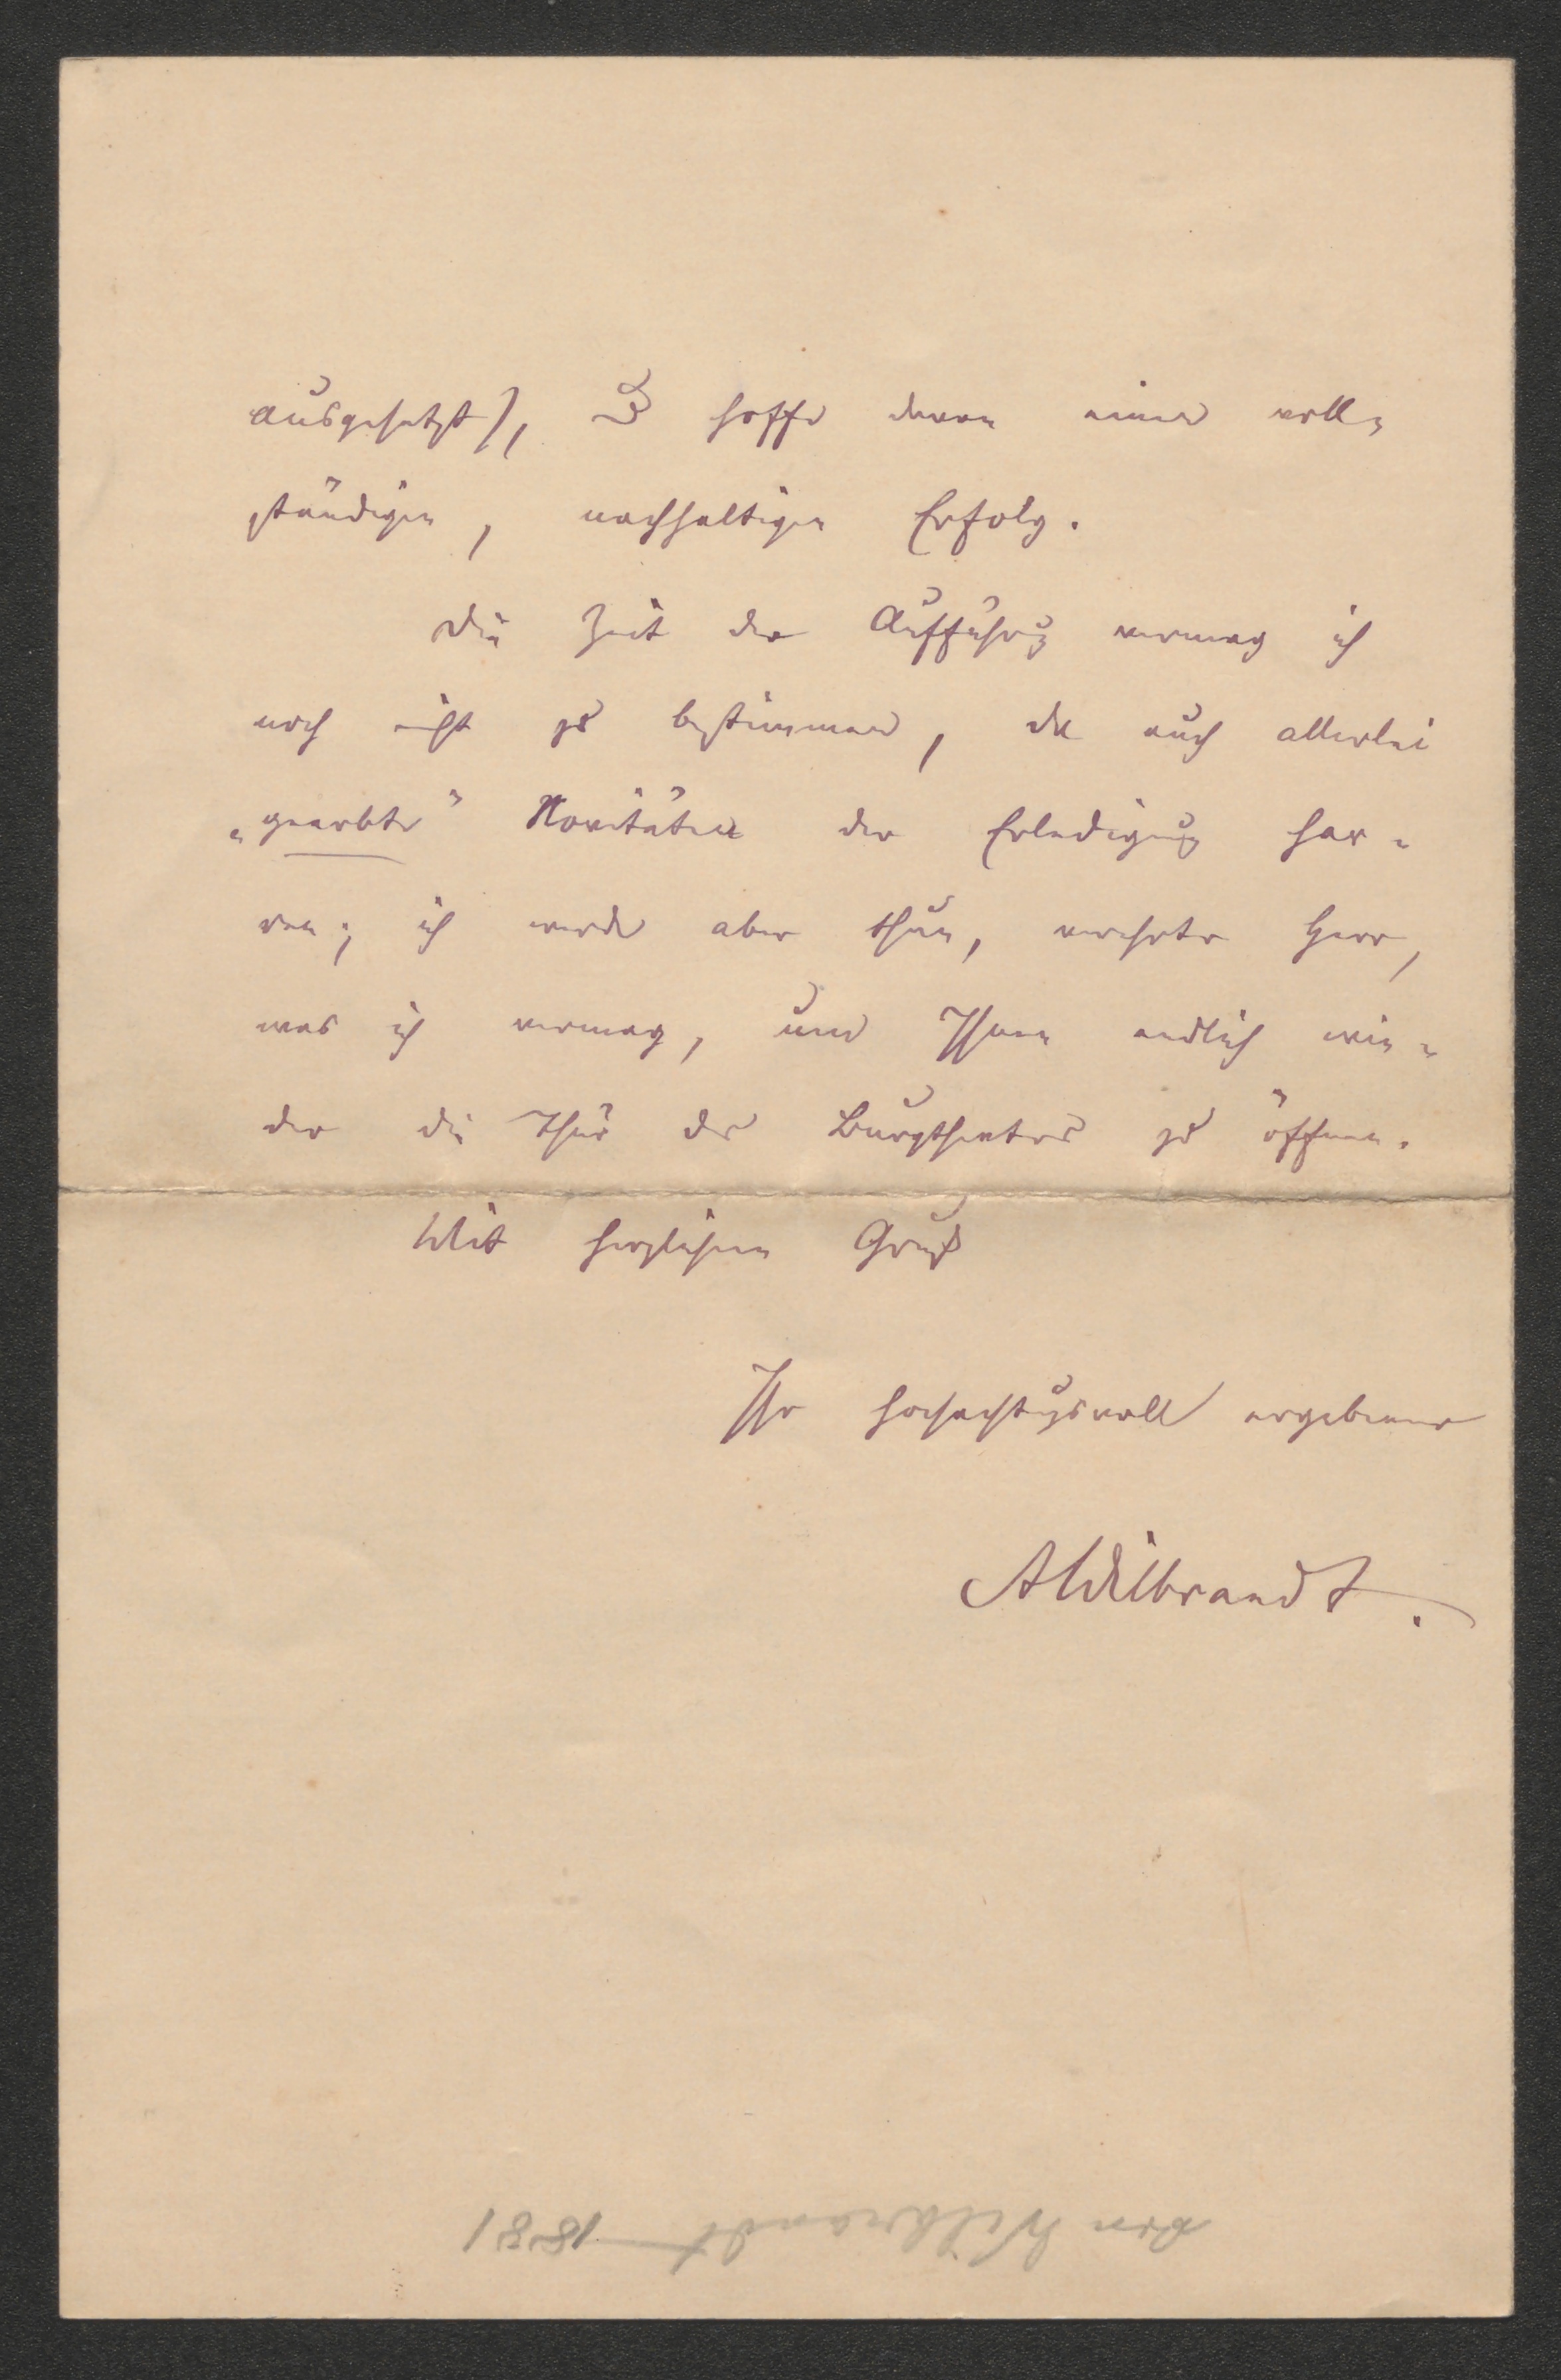 ausgesetzt), & hoffe davon einen voll-
ständigen, nachhaltigen Erfolg.
Die Zeit der Aufführung vermag ich
noch nicht zu bestimmen, da auch allerlei
„geerbte" Novitäten der Erledigung har-
ren; ich werde aber thun, verehrter Herr,
was ich vermag, um Ihnen endlich wie-
der die Thür des Burgtheaters zu öffnen.
Mit herzlichem Gruß
Ihr hochachtungsvoll ergebener
AWilbrandt.
von Wilbrandt 1881